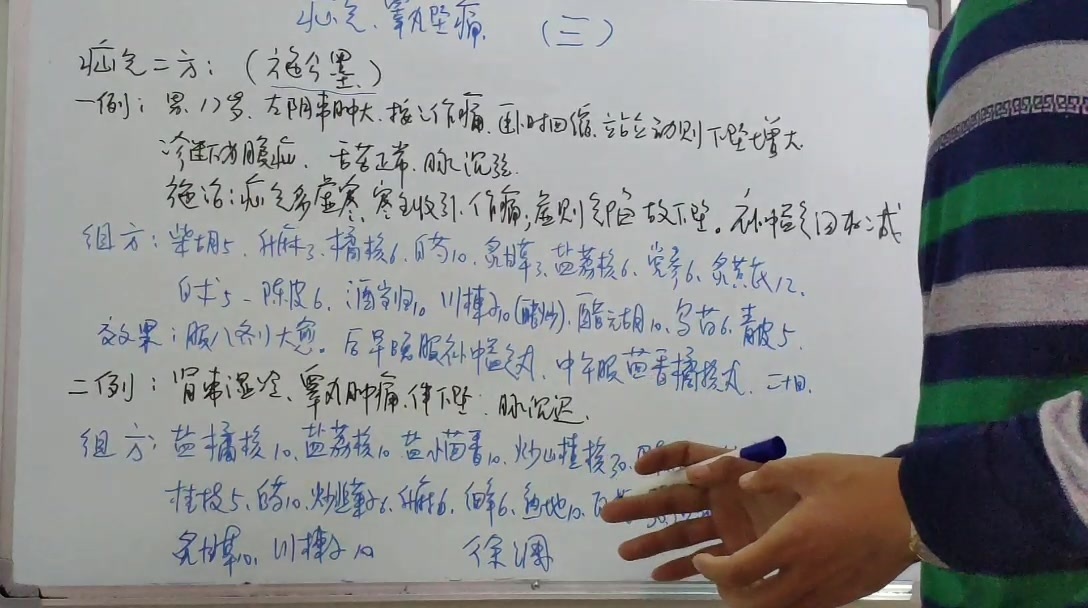 疝气、睾丸坠痛 (三)
疝气二方:(施今墨)
一例:男、17岁、左阴睾肿大、按之作痛、卧时回缩、站立动则下坠增大
诊断为腹疝、舌苔正常、脉沉弦.
施治:疝气多虚寒、寒主收引、作痛;虚则气陷故下坠。补中益气加减
组方:柴胡5、升麻3、橘核6、白芍10、炙甘草3、盐荔核6、党参6、炙黄芪12、
白术5、陈皮6、酒当归10、川楝子10(醋炒)、醋元胡10、乌药6、青皮5.
效果:服八剂大愈。后早晚服补中益气丸、中午服茴香橘核丸、二十日.
二例:肾囊湿冷、睾丸肿痛、伴下坠、脉沉迟、
组方:盐橘核10、盐荔核10、盐小茴香10、炒山楂核30、
桂枝5、白芍10、炒韭菜子6、升麻6、细辛6、熟地10、
炙甘草10、川楝子10